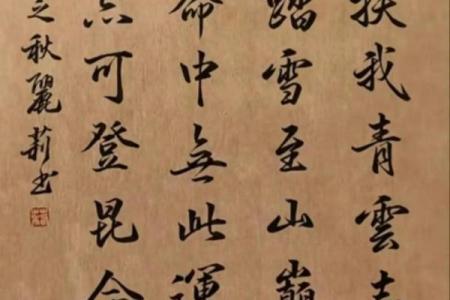 扶我青雲
踏雪至山巔
命中無此運
亦可登昆
之秋麗莉书